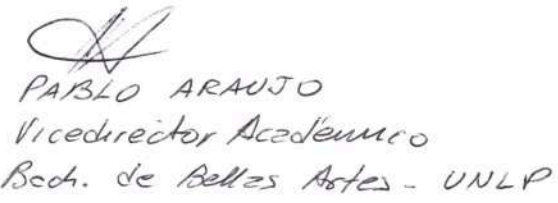 PABLO ARAUJO
Vicedirector Académico
Bach. de Bellas Artes - UNLP